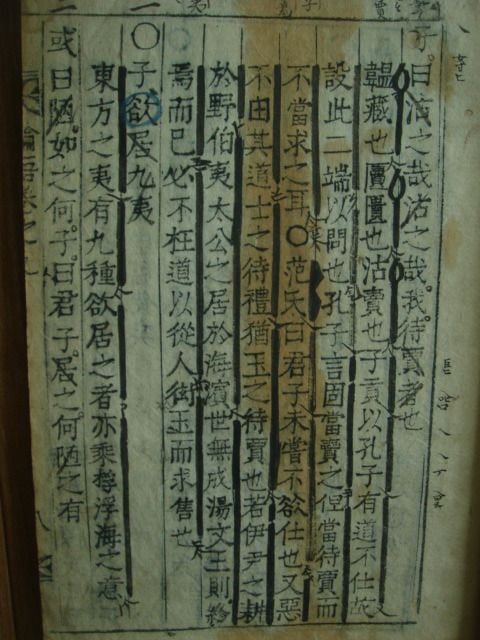 子曰沽之哉沽之哉我待賈者也
韞藏也匵匱也沽賣也子貢以孔子有道不仕故
設此二端以問也孔子言固當賣之但當待賈而
不當求之耳○范氏曰君子未嘗不欲仕也又惡
不由其道士之待禮猶玉之待賈也若伊尹之耕
於野伯夷太公之居於海濱世無成湯文王則終
焉而已必不枉道以從人衒玉而求售也
○子欲居九夷
東方之夷有九種欲居之者亦乘桴浮海之意
或曰陋如之何子曰君子居之何陋之有